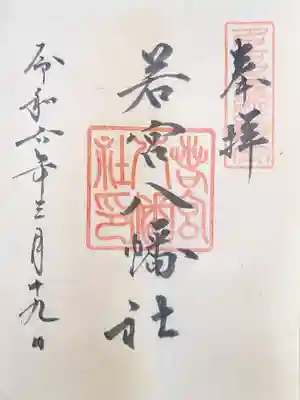 奉拝
若宮八幡社
令和六年三月十九日
若宮八幡社印